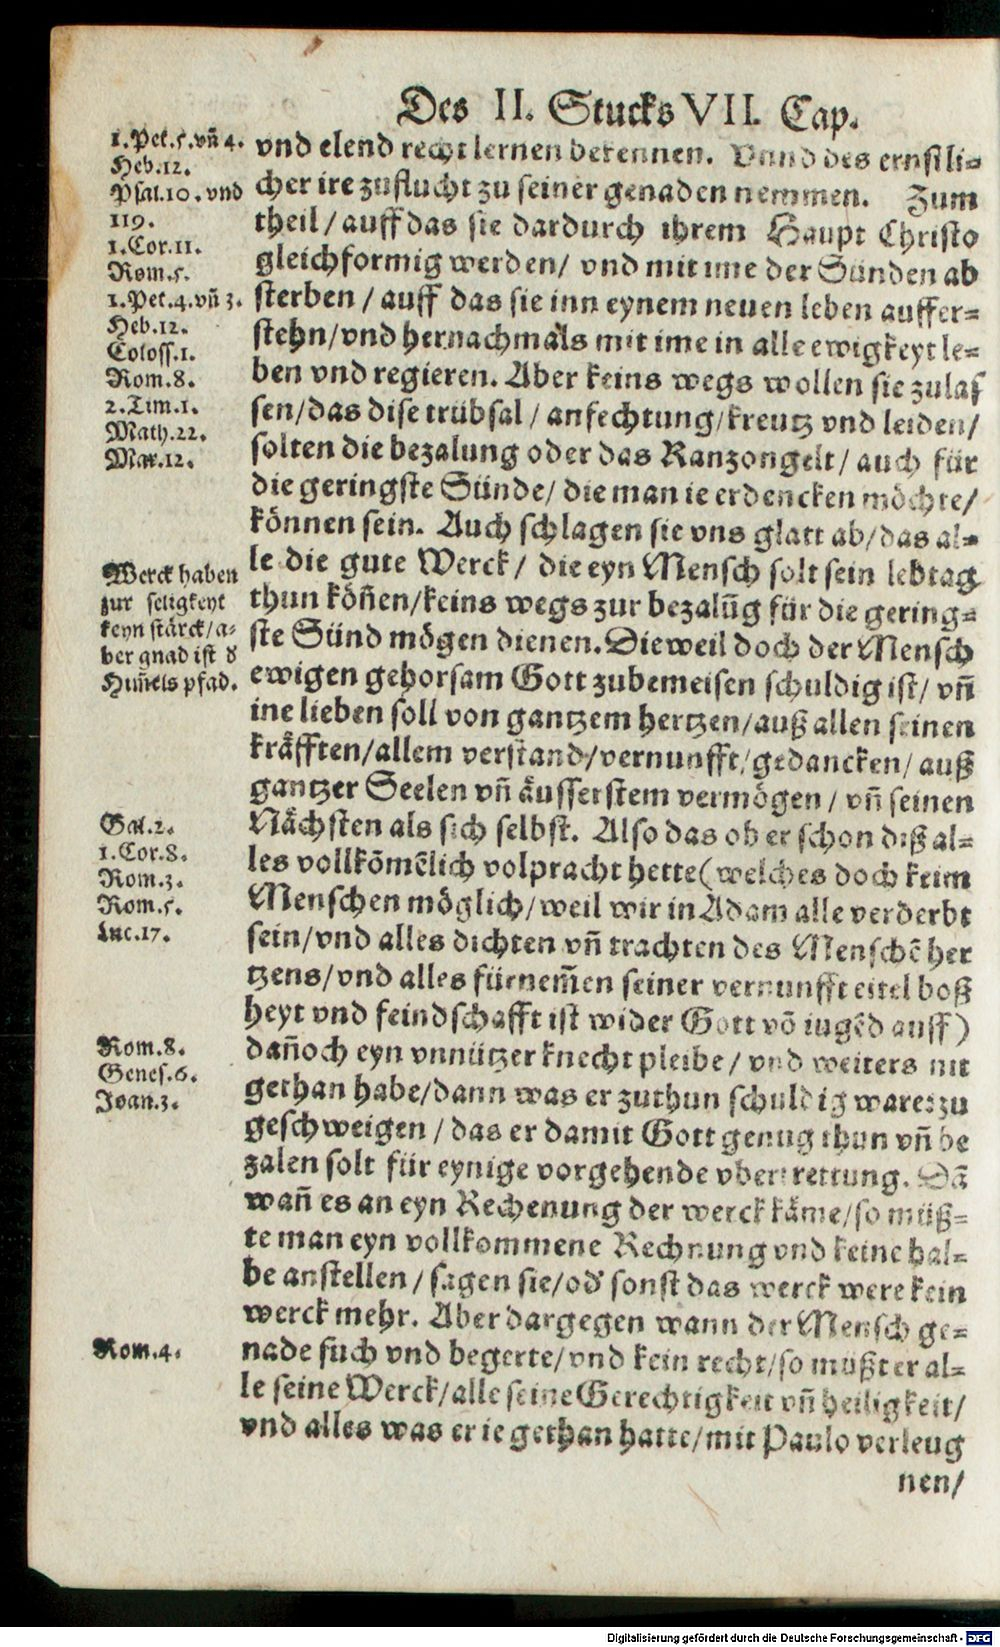 Des II. Stucks VII. Cap.
1.Pet.5.vñ 4.
Heb.12.
Psal.10. vnd
119.
1.Cor.11.
Rom.5.
1.Pet.4.vñ 3.
Heb.12.
Coloss.1.
Rom.8.
2.Tim.1.
Math.22.
Mar.12.
Werck haben
zur seligkeyt
keyn stärck/a-
ber gnad ist d̕
Him̃els pfad.
Gal.2.
1.Cor.8.
Rom.3.
Rom.5.
Luc.17.
Rom.8.
Genes.6.
Joan.3.
Rom.4.
vnd elend recht lernen bekennen. Vnnd des ernstli=
cher ire zuflucht zu seiner genaden nemmen. Zum
theil/ auff das sie dardurch ihrem Haupt Christo
gleichformig werden/ vnd mit ime der Sünden ab
sterben / auff das sie inn eynem neuen leben auffer=
stehn/vnd hernachmals mit ime in alle ewigkeyt le=
ben vnd regieren. Aber keins wegs wollen sie zulas
sen/das dise trübsal / anfechtung/kreutz vnd leiden/
solten die bezalung oder das Ranzongelt/ auch für
die geringste Sünde/ die man ie erdencken möchte/
können sein. Auch schlagen sie vns glatt ab/das al=
le die gute Werck/ die eyn Mensch solt sein lebtag
thun köñen/keins wegs zur bezalũg für die gering=
ste Sünd mögen dienen. Dieweil doch der Mensch
ewigen gehorsam Gott zubemeisen schuldig ist/ vñ
ine lieben soll von gantzem hertzen/auß allen seinen
kräfften/allem verstand/vernunfft/gedancken/ auß
gantzer Seelen vñ äusserstem vermögen / vñ seinen
Nächsten als sich selbst. Also das ob er schon diß al=
les vollkõmẽlich volpracht hette(welches doch keim
Menschen möglich/weil wir in Adam alle verderbt
sein/vnd alles dichten vñ trachten des Menschẽ her
tzens/vnd alles fürnem̃en seiner vernunfft eitel boß
heyt vnd feindschafft ist wider Gott võ iugẽd auff)
dañoch eyn vnnützer knecht pleibe/ vnd weiters nit
gethan habe/dann was er zuthun schuldig ware: zu
geschweigen / das er damit Gott genug thun vñ be
zalen solt für eynige vorgehende vbertrettung. Dã
wañ es an eyn Rechenung der werck käme/so müß=
te man eyn vollkommene Rechnung vnd keine hal=
be anstellen / sagen sie/od̕ sonst das werck were kein
werck mehr. Aber dargegen wann der Mensch ge=
nade such vnd begerte/vnd kein recht/so müßt er al=
le seine Werck/alle seine Gerechtigkeit vñ heiligkeit/
vnd alles was er ie gethan hatte/mit Paulo verleug
nen/
Digitalisierung gefördert durch die Deutsche Forschungsgemeinschaft - DFG